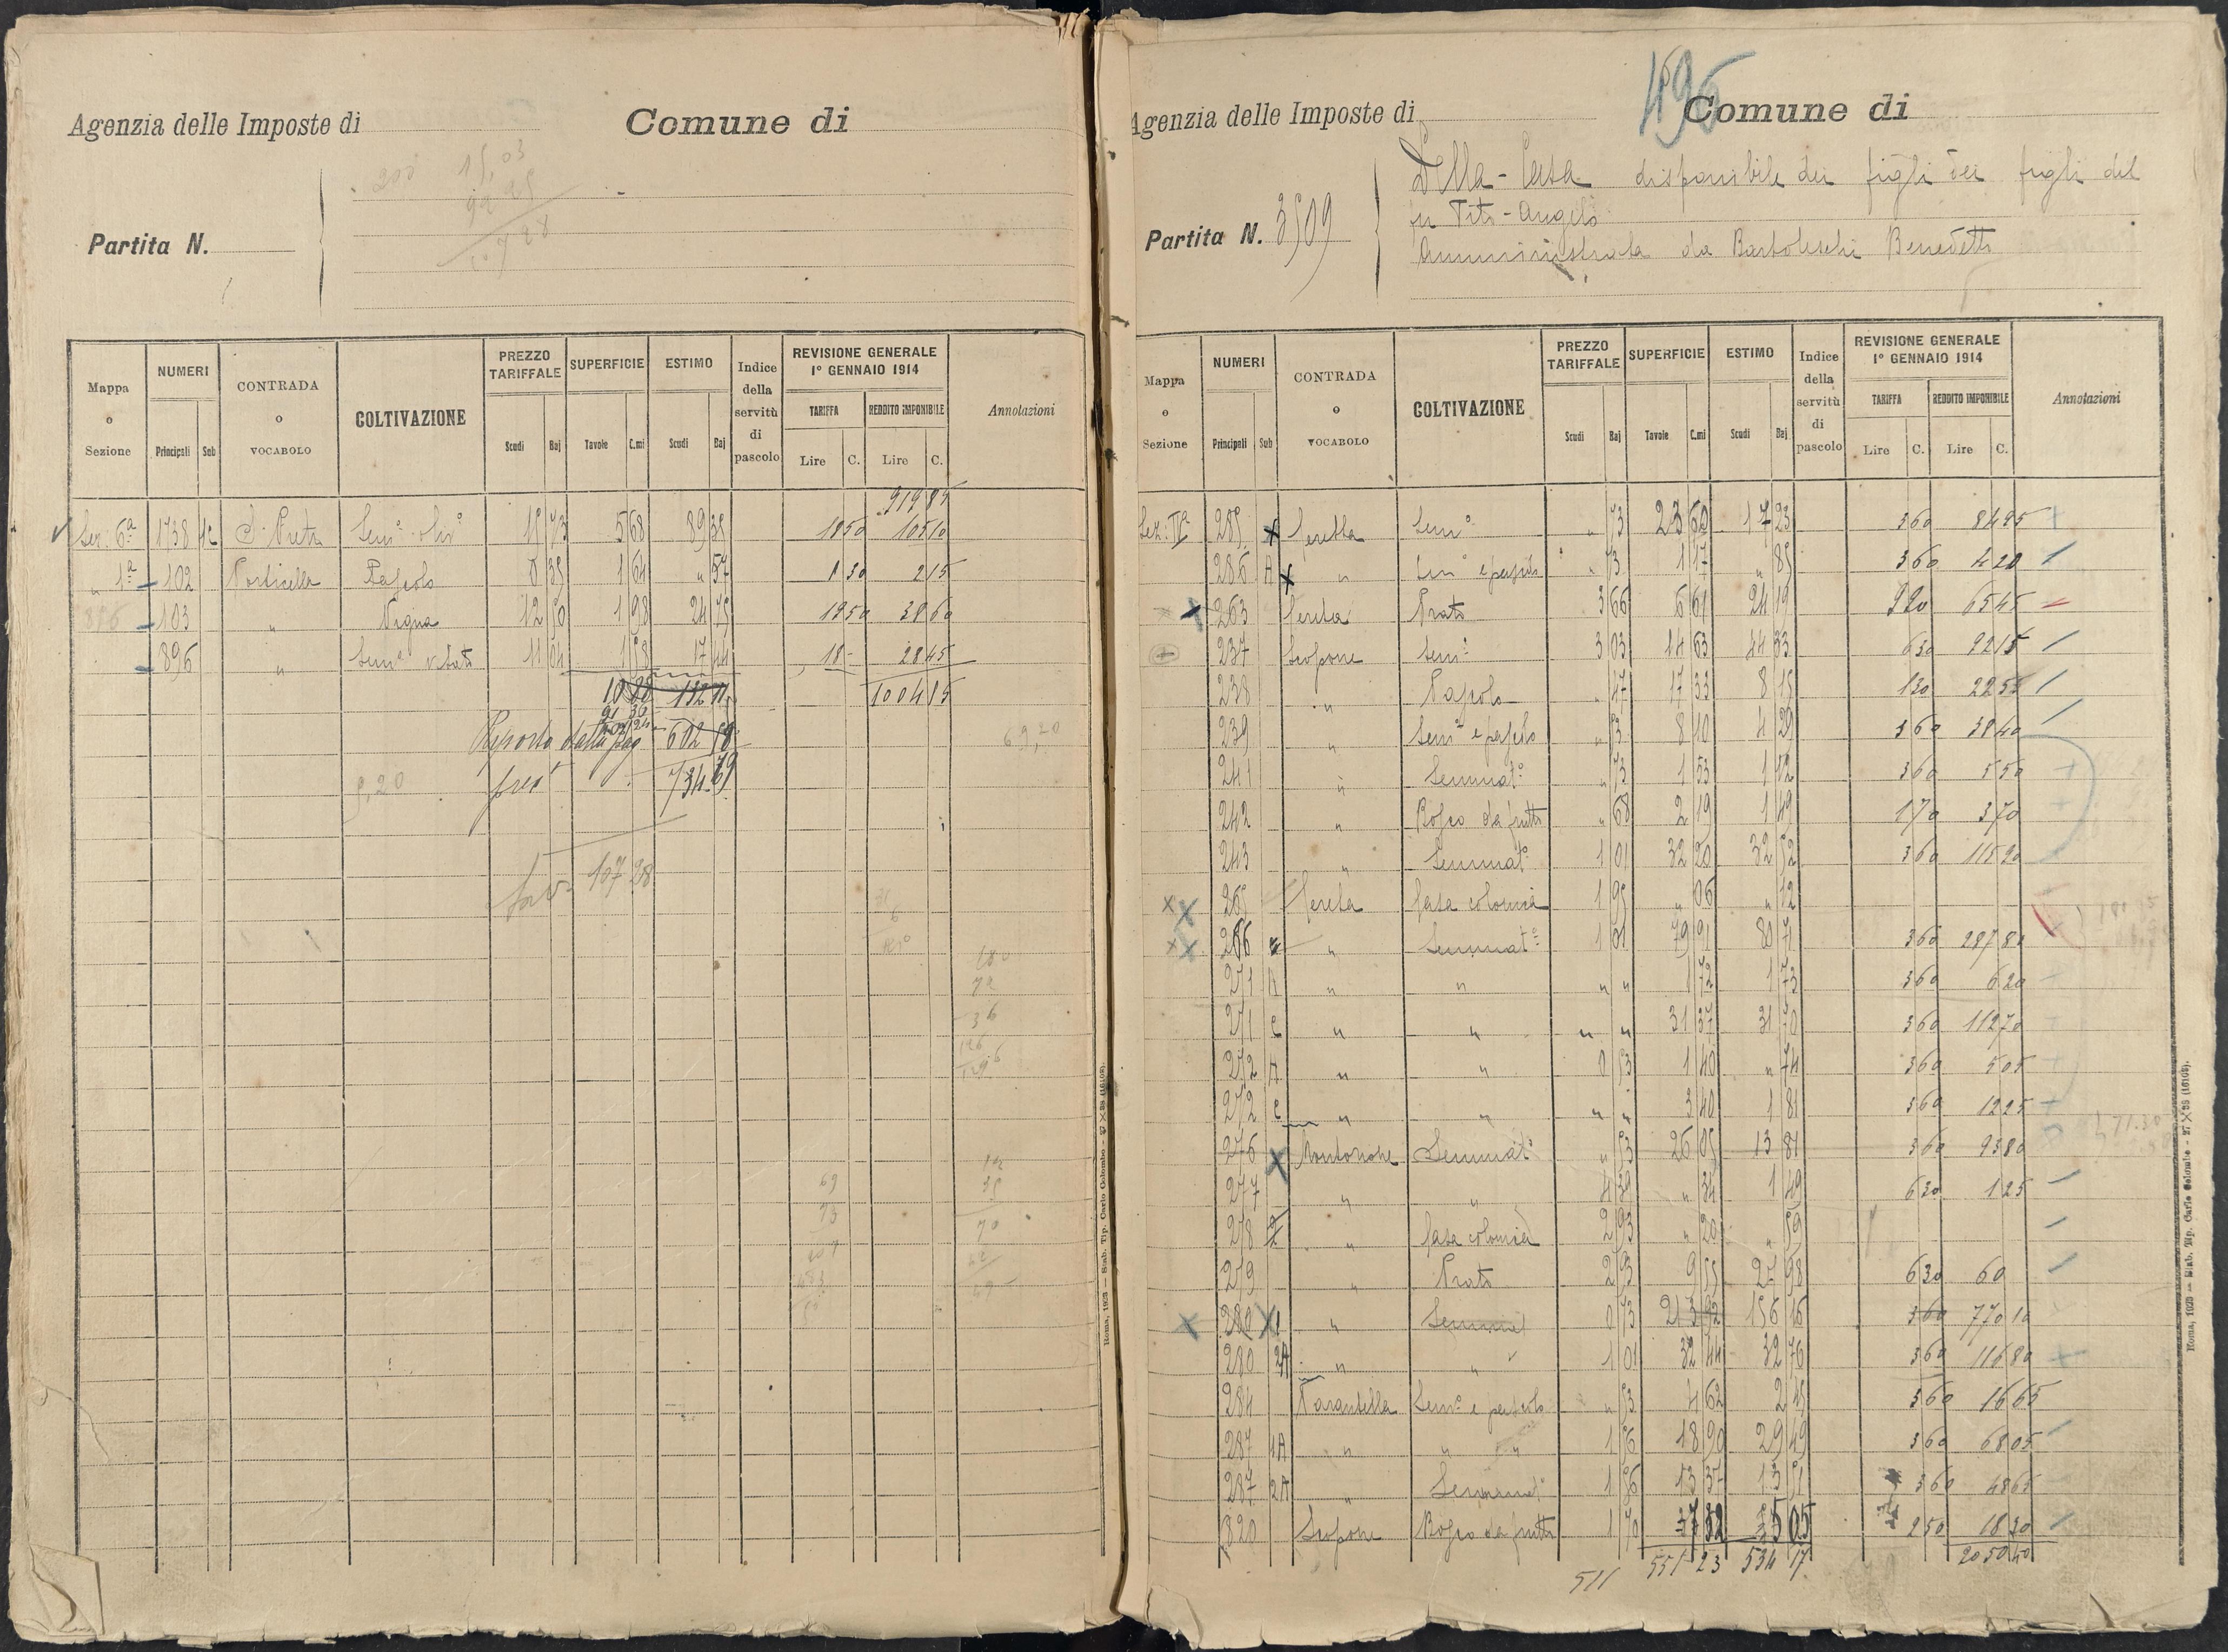 Agenzia delle Imposte di
Comune di
Partita N.
200 15,03
92 25
107 28
Mappa o Sezione | NUMERI Principali Sub | CONTRADA o VOCABOLO | COLTIVAZIONE | PREZZO TARIFFALE Scudi Baj | SUPERFICIE Tavole C.mi | ESTIMO Scudi Baj | Indice della servitù di pascolo | REVISIONE GENERALE 1° GENNAIO 1914 TARIFFA Lire C. REDDITO IMPONIBILE Lire C. | Annotazioni
919 85
Sez. 6ª 1738 S. Pietro Semº olivº 15 73 5 68 89 35 18 50 105 10
" 1ª 102 Porticella Pascolo 1 64 " 57 1 30 2 15
896 103 " Vigna 12 50 1 98 24 75 19 50 38 60
896 " Semº vitato 11 04 1 58 17 44 18 - 28 45
10 88 132 11 1004 15
Riporto dalla pag 602 58
69,20
5,20 734 69
107 28
Roma, 1923 — Stab. Tip. Carlo Colombo - 27 × 38 (16102).
Agenzia delle Imposte di
496
Comune di
Partita N. 3509
Della-Casa disponibile dei figli dei figli del
fu Tito-Angelo
Amministrata da Bartoleschi Benedetto
Mappa o Sezione | NUMERI Principali Sub | CONTRADA o VOCABOLO | COLTIVAZIONE | PREZZO TARIFFALE Scudi Baj | SUPERFICIE Tavole C.mi | ESTIMO Scudi Baj | Indice della servitù di pascolo | REVISIONE GENERALE 1° GENNAIO 1914 TARIFFA Lire C. REDDITO IMPONIBILE Lire C. | Annotazioni
285 Semº " 73 23 60 17 23 3 60 84 95
286 A " Semº e pascolo " 73 1 17 " 85 3 60 4 20
263 Cereta Prato 3 66 6 61 24 19 9 90 65 45
237 Scopone Semº 3 03 14 63 44 33 6 30 92 15
238 " Pascolo " 47 17 33 8 15 1 30 22 55
239 " Semº e pascolo " 53 8 10 4 29 3 60 38 40
241 " Seminatº " 73 1 53 1 12 3 60 5 50
242 " Bosco da frutto " 68 2 19 1 49 1 70 3 70
243 " Seminatº 1 01 32 20 32 52 3 60 115 90
265 Cereta Casa colonica 1 95 " 06 " 12
266 " Seminatº 1 01 79 91 80 71 3 60 287 80
271 A " " " " 1 72 1 73 3 60 6 20
271 C " " " " 31 37 31 70 3 60 112 70
272 A " " 0 53 1 40 " 74 3 60 5 05
272 C " " " " 3 40 1 81 3 60 12 25
276 Montorone Seminatº " 53 26 05 13 81 3 60 93 80
277 " " 4 39 " 34 1 49 6 30 1 25
278 " Casa colonica 2 93 " 20 " 59
279 " Prato 2 93 9 55 27 98 6 30 60
280 1 " Seminat 0 73 213 92 156 16 3 60 770 10
280 2A " " 1 01 32 44 32 76 3 60 116 80
284 Tarantella Semº e pascolo " 53 4 62 2 45 3 60 16 65
287 1A " " " 1 56 18 90 29 49 3 60 68 05
287 2A " Seminatº 13 37 3 60 48 65
820 Scopone Bosco da frutto 1 70 2 50 18 30
511 551 23 534 17 2050 40
Roma, 1923 — Stab. Tip. Carlo Colombo - 27 × 38 (16102).